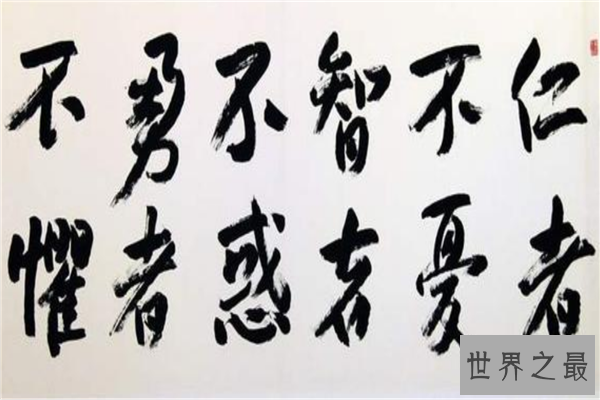 仁者
不憂
智者
不惑
勇者
不懼
世界之最